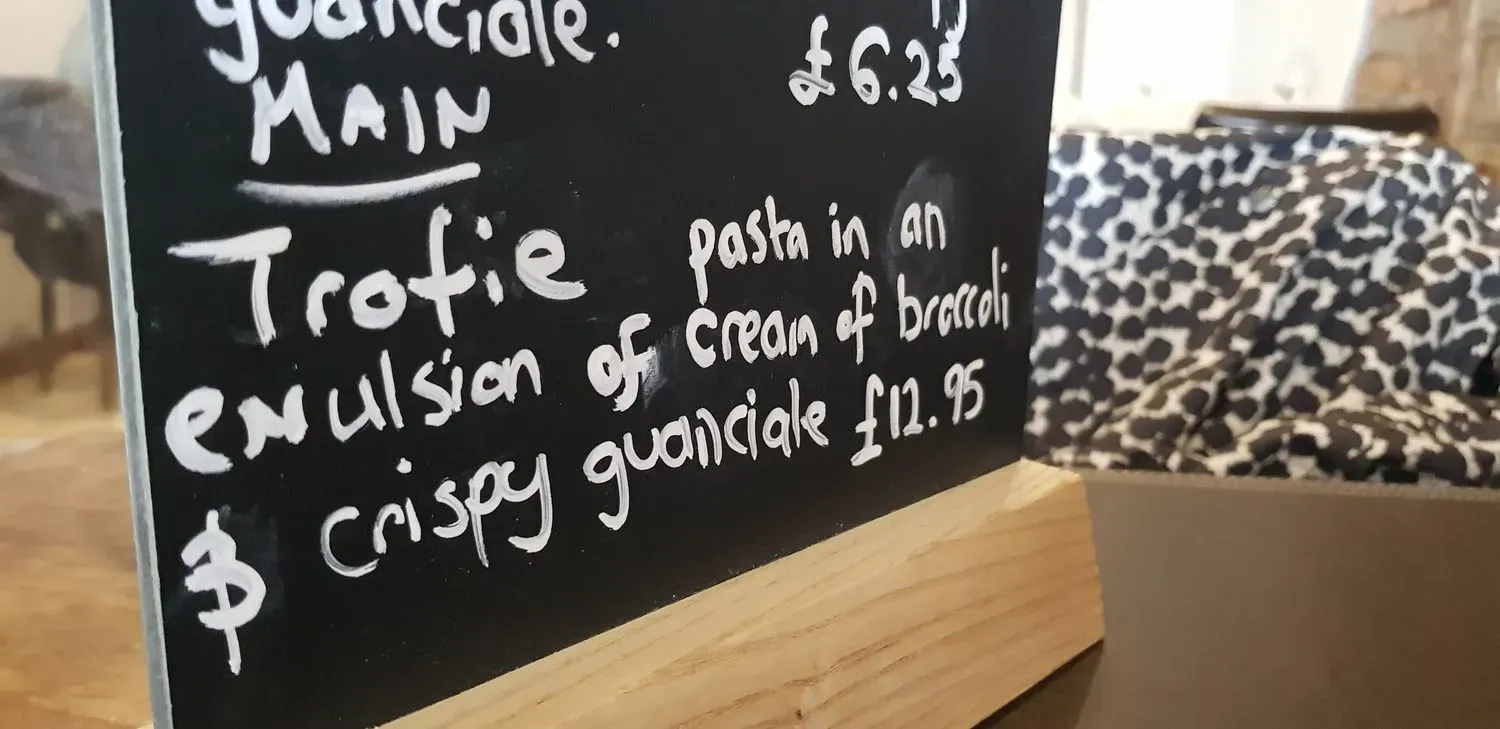 guanciale.
£6.25
MAIN
Trofie pasta in an
emulsion of cream of broccoli
$ crispy guanciale £12.95